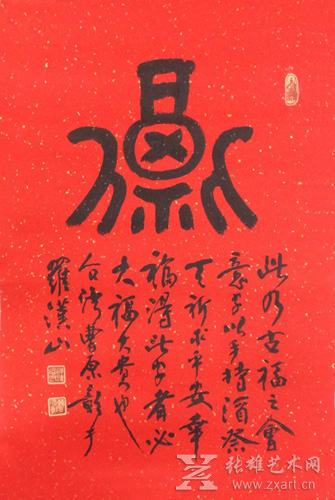 福
此乃古福之會
意字以手持酒祭
天祈求平安幸
福得此字者必
大福大贵也
曹原于
羅漢山
张雄艺术网
www.zxart.cn